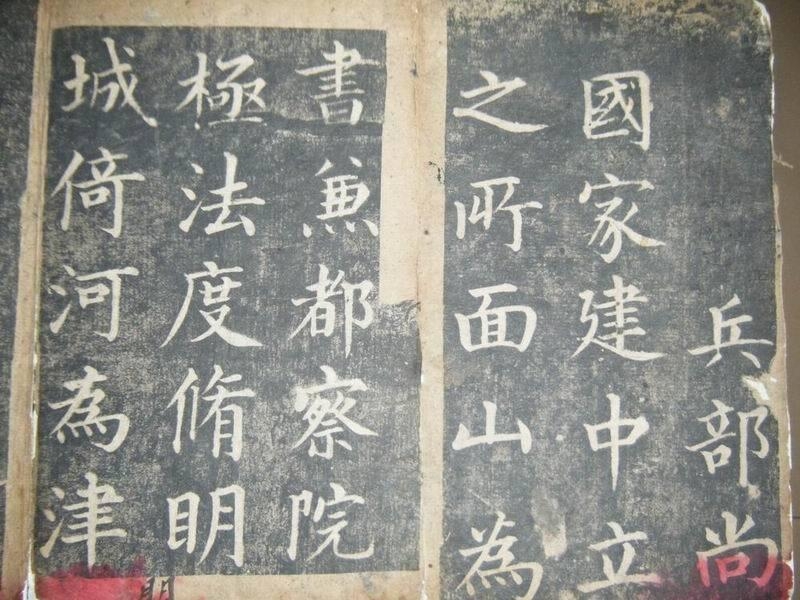 兵部尚
國家建中立
之所面山為
書兼都察院
極法度脩明
城倚河為津